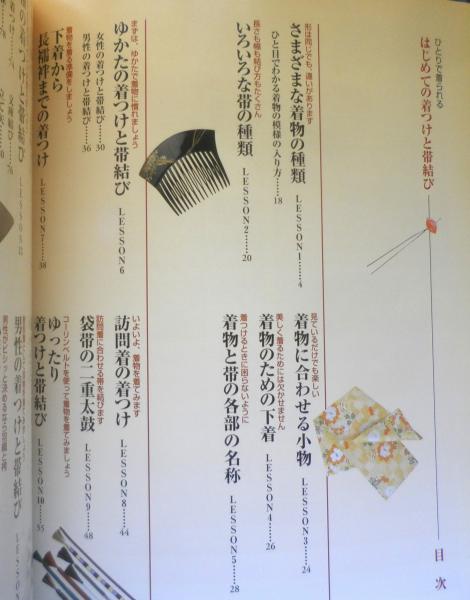 ひとりで着られる
はじめての着つけと帯結び
目次
形は同じでも、違いがあります
さまざまな着物の種類 LESSON1……4
ひと目でわかる着物の模様の入り方……18
長さも幅も結び方もたくさん
いろいろな帯の種類 LESSON2……20
見ているだけでも楽しい
着物に合わせる小物 LESSON3……24
美しく着るためには欠かせません
着物のための下着 LESSON4……26
着つけるときに困らないように
着物と帯の各部の名称 LESSON5……28
まずは、ゆかたで着物に慣れましょう
ゆかたの着つけと帯結び LESSON6
女性の着つけと帯結び……30
男性の着つけと帯結び……36
着物を着る準備をしましょう
下着から
長襦袢までの着つけ LESSON7……38
いよいよ、着物を着てみます
訪問着の着つけ LESSON8……44
訪問着に合わせる帯を結びます
袋帯の二重太鼓 LESSON9……48
コーリンベルトを使って着物を着てみましょう
ゆったり
着つけと帯結び LESSON10……55
男性の着つけと帯結び